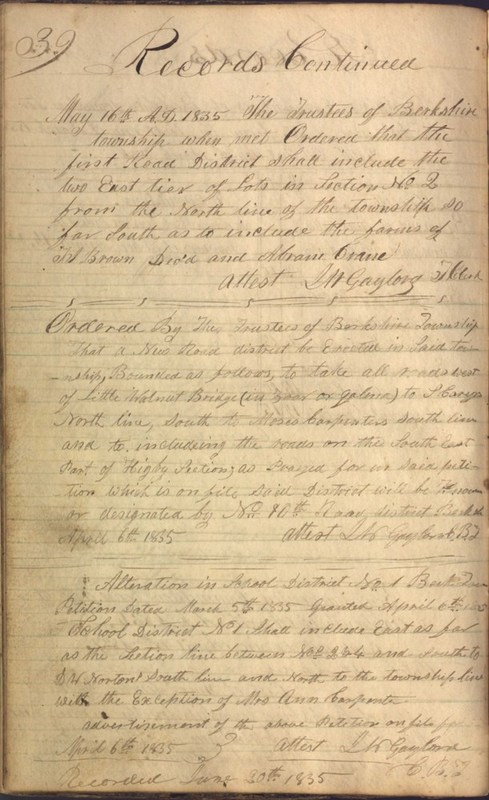 39
Records Continued
May 16th A.D. 1835 The Trustees of Berkshire
township when met Ordered that the
first Road District shall include the
two East tier of Lots in Section No 2
from the North line of the township so
far South as to include the farms of
Brown Dec'd and Abram Crane
attest J W Gaylord T Clerk
Ordered By The Trustees of Berkshire Township
That a New Road district be Erected in Said tow-
-nship, Bounded as follows, to take all roads west
of Little Walnut Bridge (in near or Galena) to
North line, South to Moses Carpenters South line
and to including the roads on the South East
Part of Higby Section, as Prayed for in Said peti-
tion which is on file, Said District will be known
or designated by No 10th Road district
April 6th 1835 attest J W Gaylord
Alteration in School District No 1 Berk
Petition Dated March 5th 1835 Granted April 6th 1835
School District No 1 Shall include East as far
as the Section line between No 2 & 4 and South to
Norton South line and North to the township line
with the Exception of Mrs Ann Carpenter
advertisement of the above Petition on file
April 6th 1835 attest J W Gaylord
Recorded June 20th 1835